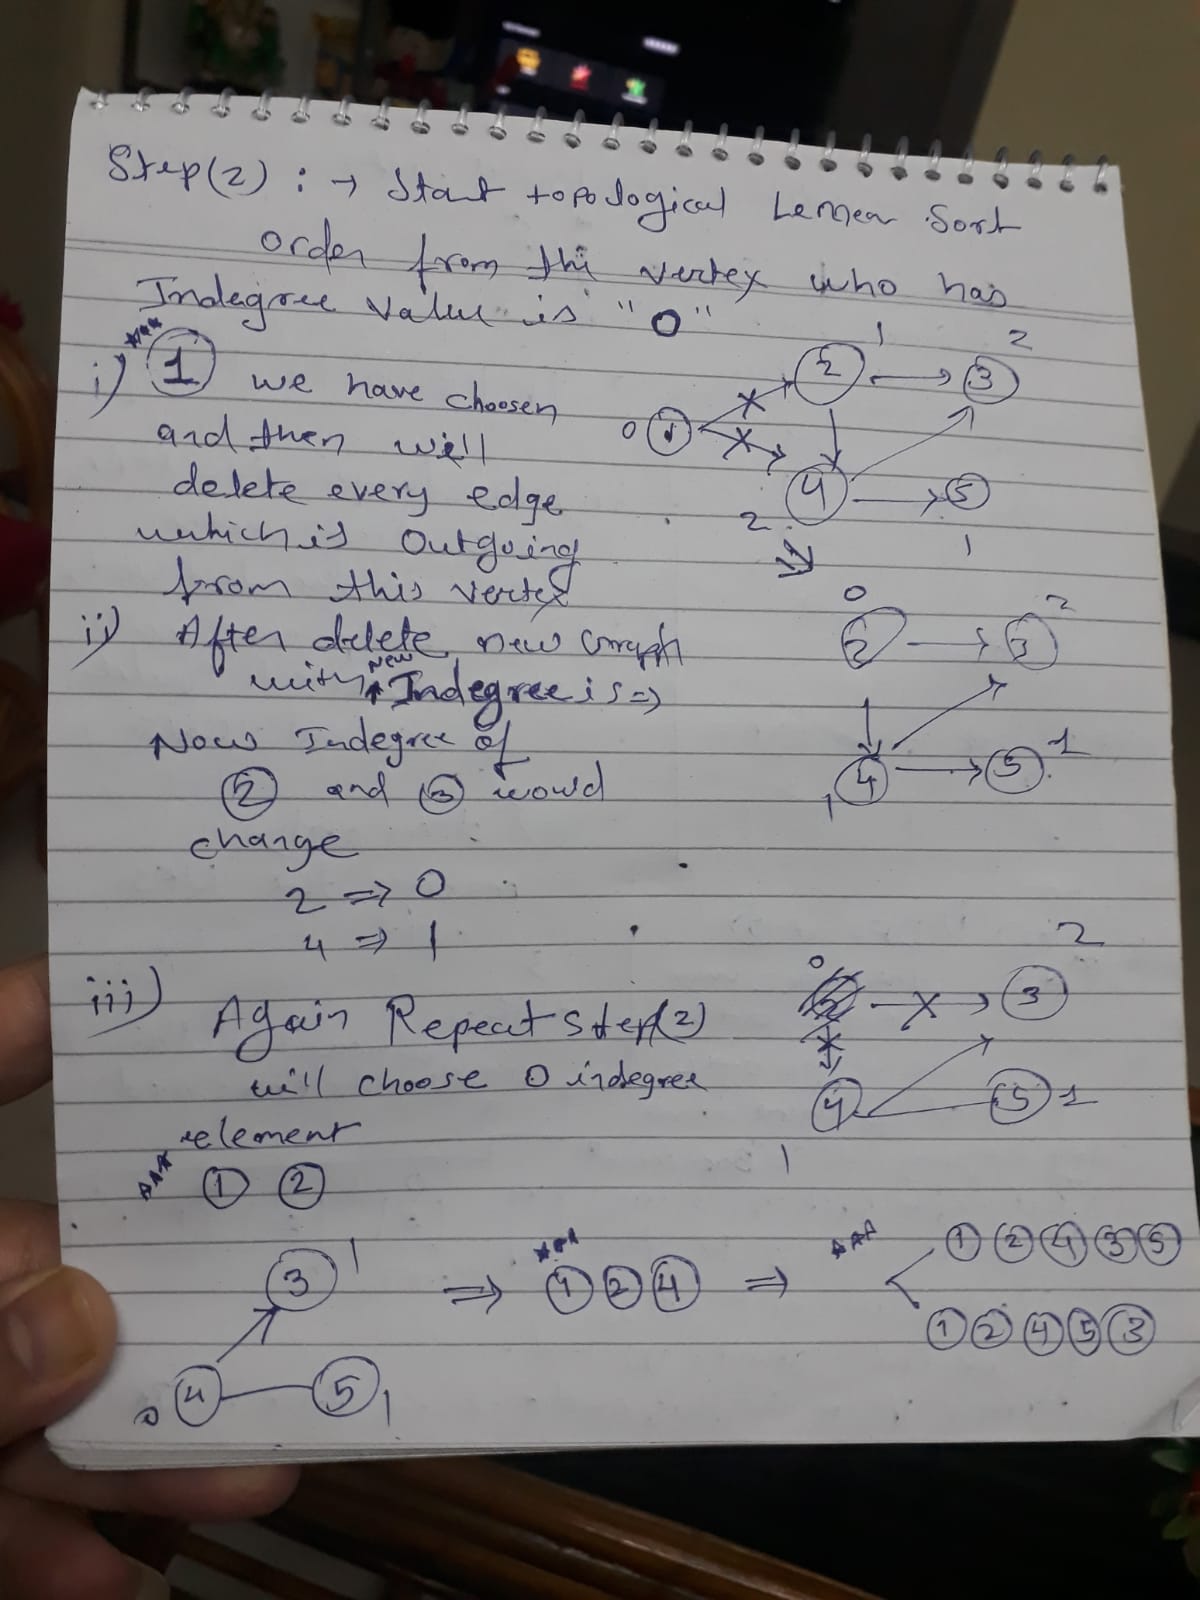 Step(2) : → Start topological Lenear Sort
order from the vertex who has
Indegree value is "0"
i) 1 we have choosen
and then will
delete every edge
which is outgoing
from this vertex
1 2
2 → 3
0 1
4 → 5
2
1
ii) After delete new Graph
with New Indegree is ⇒
Now Indegree of
2 and 3 would
change
2 ⇒ 0
4 ⇒ 1
0 2
2 → 3
4 → 5 1
1
iii) Again Repeat Step(2)
will choose 0 indegree
element
1 2
0 2
2 X → 3
4 5 1
1
3 1
4 5 1
0
⇒ 1 2 4 ⇒
1 2 4 3 5
1 2 4 5 3